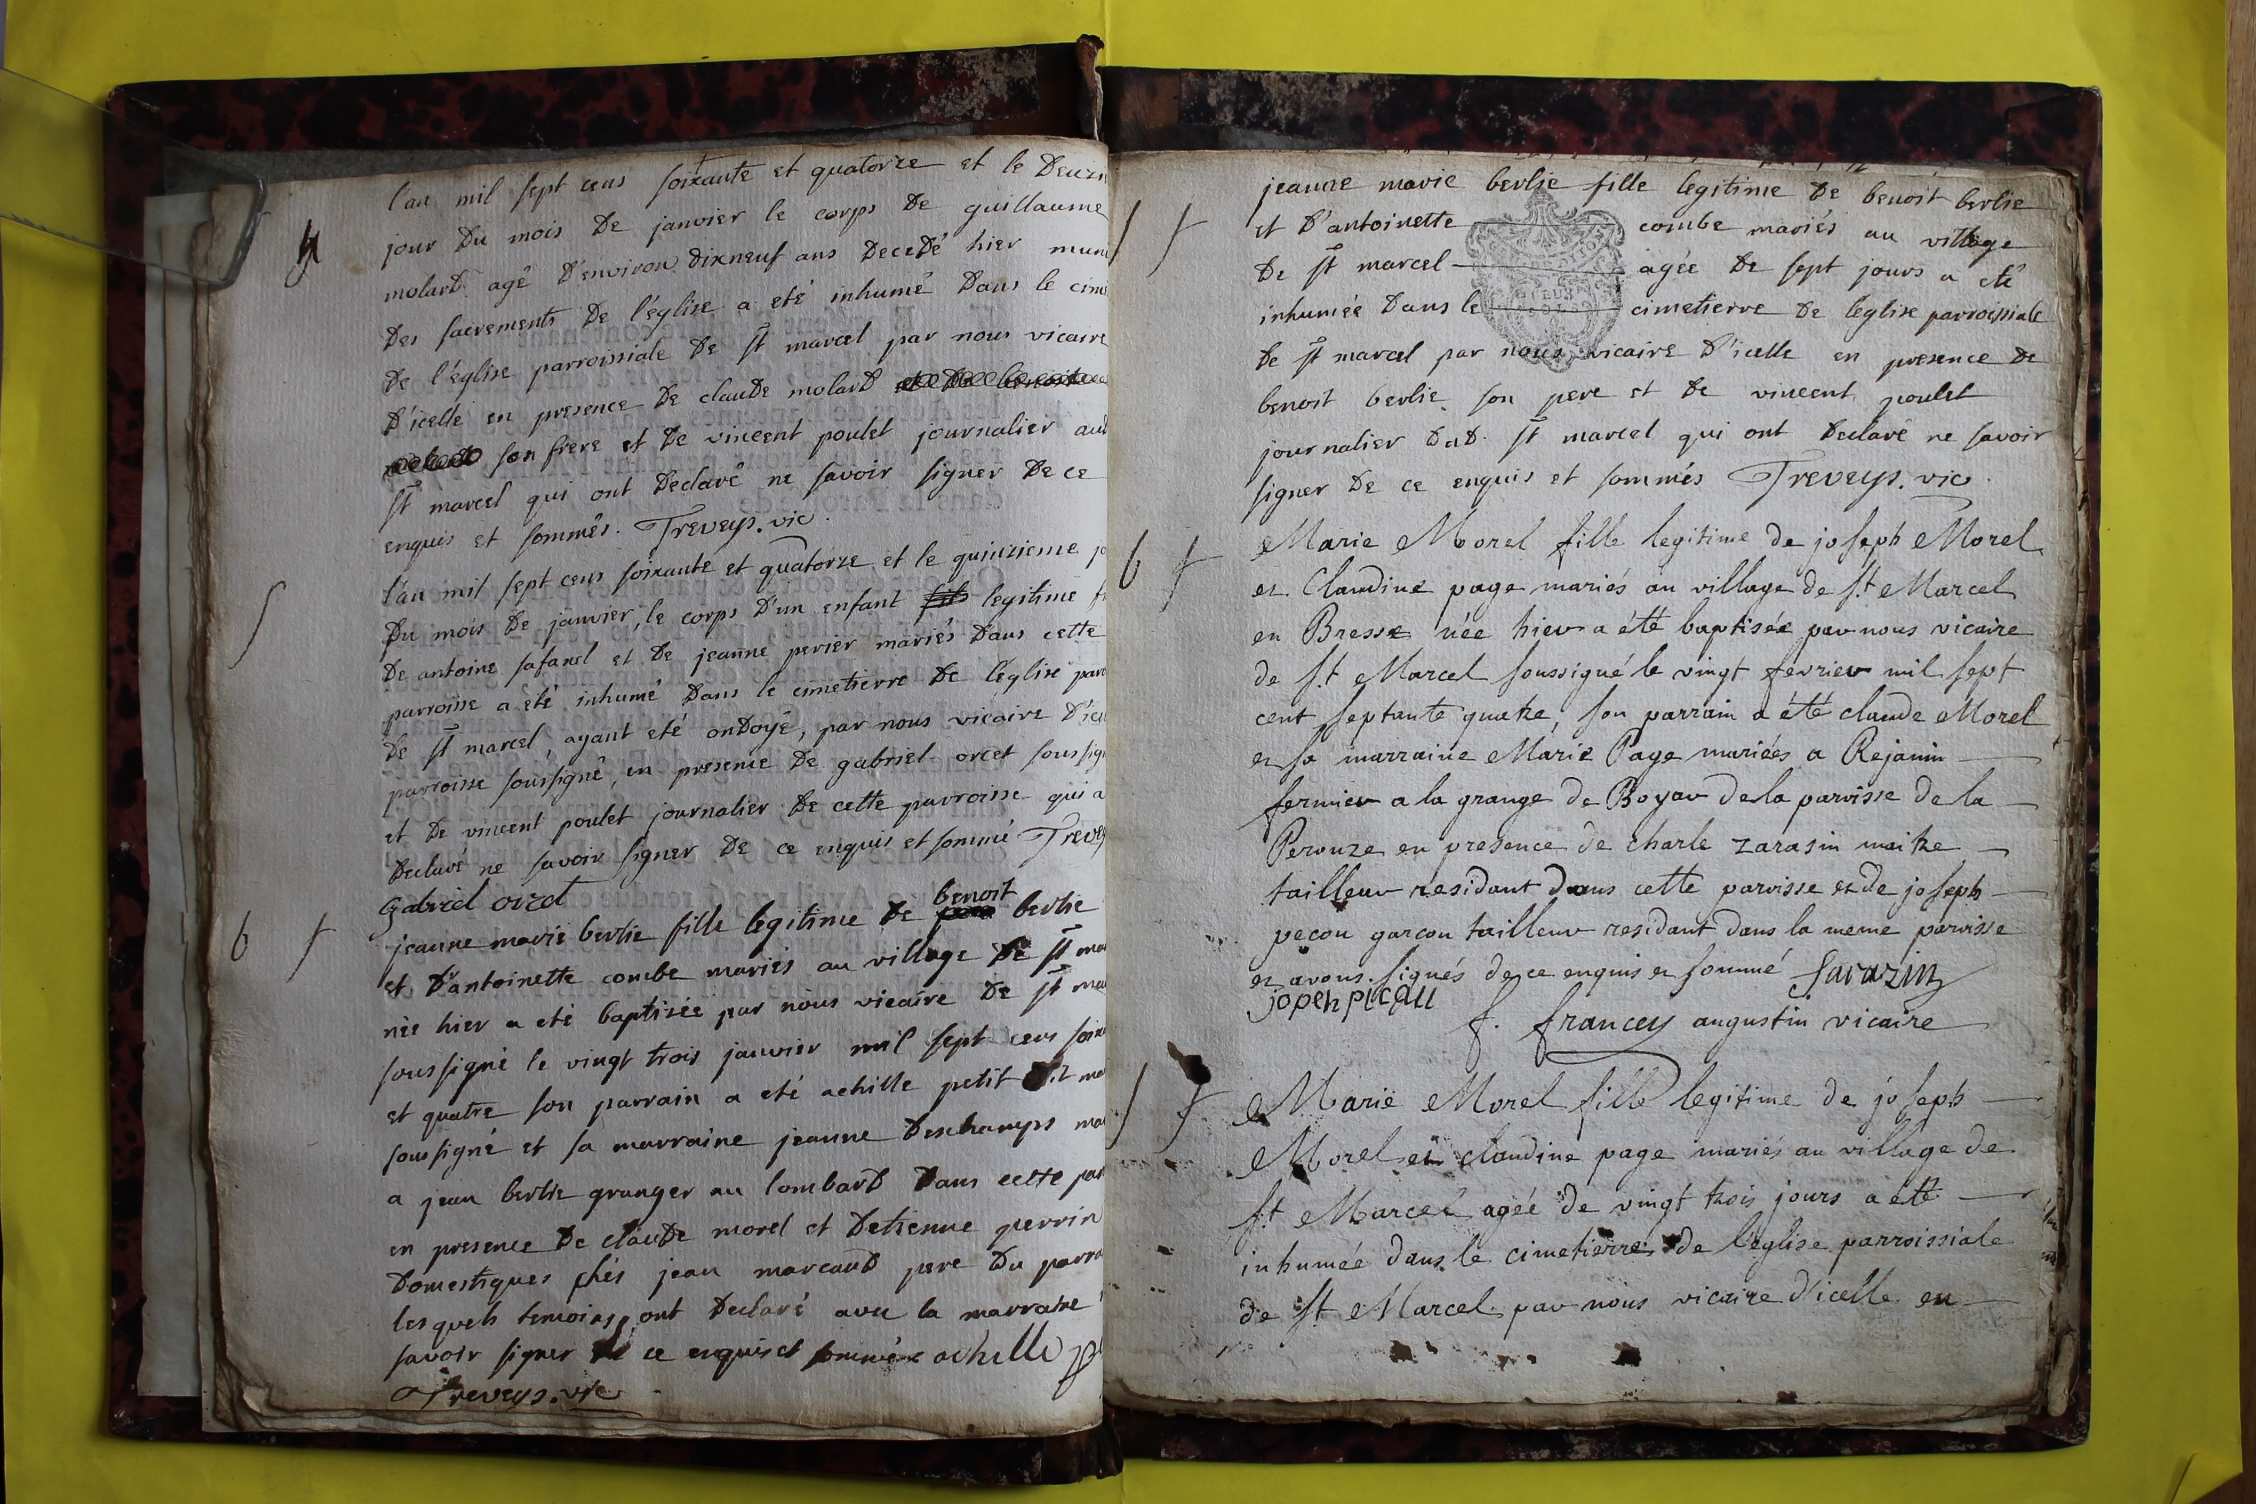 l'an mil sept cens soixante et quatorze et le Deuzi
jour Du mois De janvier le corps De guillaume
molard agé D'environ dixneuf ans Decedé hier muni
Des sacrements De l'église a eté inhumé Dans le cime
De l'église parroissiale De st marcel par nous vicaire
D'icelle en presence De claude molard
son frere et De vincent poulet journalier aud
st marcel qui ont Declaré ne savoir signer De ce
enquis et sommés. Treveys. vic.
l'an mil sept cens soixante et quatorze et le quinzieme jo
Du mois De janvier, le corps D'un enfant fils legitime
De antoine safanel et De jeanne perier mariés Dans cette
parroisse a été inhumé Dans le cimetierre De l'église parr
De st marcel, ayant eté ondoyé, par nous vicaire D'icel
parroisse soussigné, en presence De gabriel orcet soussig
et De vincent poulet journalier De cette parroisse qui a
Declaré ne savoir signer De ce enquis et sommé Trevey
Gabriel orcet
benoit
6 jeanne marie berlie fille legitime De berlie
et D'antoinette combe mariés au village De st mar
née hier a eté baptisée par nous vicaire De st mar
soussigné le vingt trois janvier mil sept cens soixa
et quatre son parrain a eté achille petit
soussigné et sa marraine jeanne Deschamps mar
a jean berlie granger au lombard Dans cette par
en presence De claude morel et Detienne perrin
Domestiques chés jean marcaud pere Du parra
lesquels temoins ont Declaré avec la marraine
savoir signer De ce enquis et sommés achille
Treveys. vic
jeanne marie berlie fille legitime De benoit berlie
et D'antoinette combe mariés au village
De st marcel agée De sept jours a eté
inhumée Dans le cimetierre De l'eglise parroissiale
De st marcel par nous vicaire D'icelle en presence De
benoit berlie son pere et De vincent poulet
journalier Dud. st marcel qui ont Declaré ne savoir
signer De ce enquis et sommés Treveys. vic.
6 Marie Morel fille legitime de joseph Morel
et Claudine page mariés au village de st Marcel
en Bresse née hier a été baptisée par nous vicaire
de st Marcel soussigné le vingt fevrier mil sept
cent septante quatre, son parrain a été claude Morel
et sa marraine Marie Page mariées a Rejanin
fermier a la grange de Boyar de la paroisse de la
Perouze en presence de charle zarasin maitre
tailleur residant dans cette paroisse et de joseph
pecou garcon tailleur residant dans la meme paroisse
et avons signés de ce enquis et sommé Sarazin
jopeh picau
f. francey augustin vicaire
Marie Morel fille legitime de joseph
Morel et claudine page mariés au village de
st Marcel agée de vingt trois jours a été
inhumée dans le cimetierre de l'eglise parroissiale
de st Marcel par nous vicaire d'icelle en